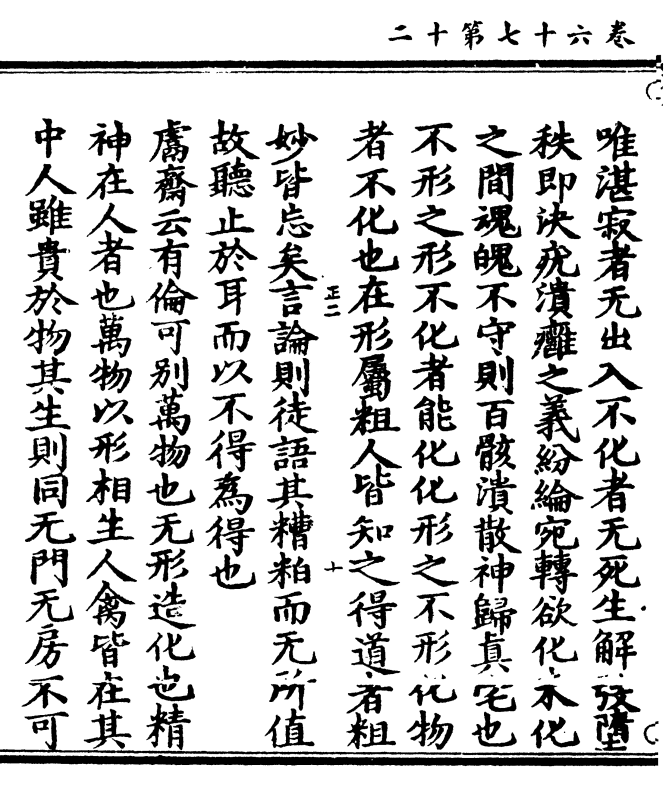 卷六十七第十二
唯湛寂者无出入不化者无死生解弢墮
秩即決疣潰癰之義紛綸宛轉欲化未化
之間魂魄不守則百骸潰散神歸真宅也
不形之形不化者能化化形之不形化物
者不化也在形屬粗人皆知之得道者粗
正二 十
妙皆忘矣言論則徒語其糟粕而无所值
故聽止於耳而以不得為得也
鬳齋云有倫可别萬物也无形造化也精
神在人者也萬物以形相生人禽皆在其
中人雖貴於物其生則同无門无房不可